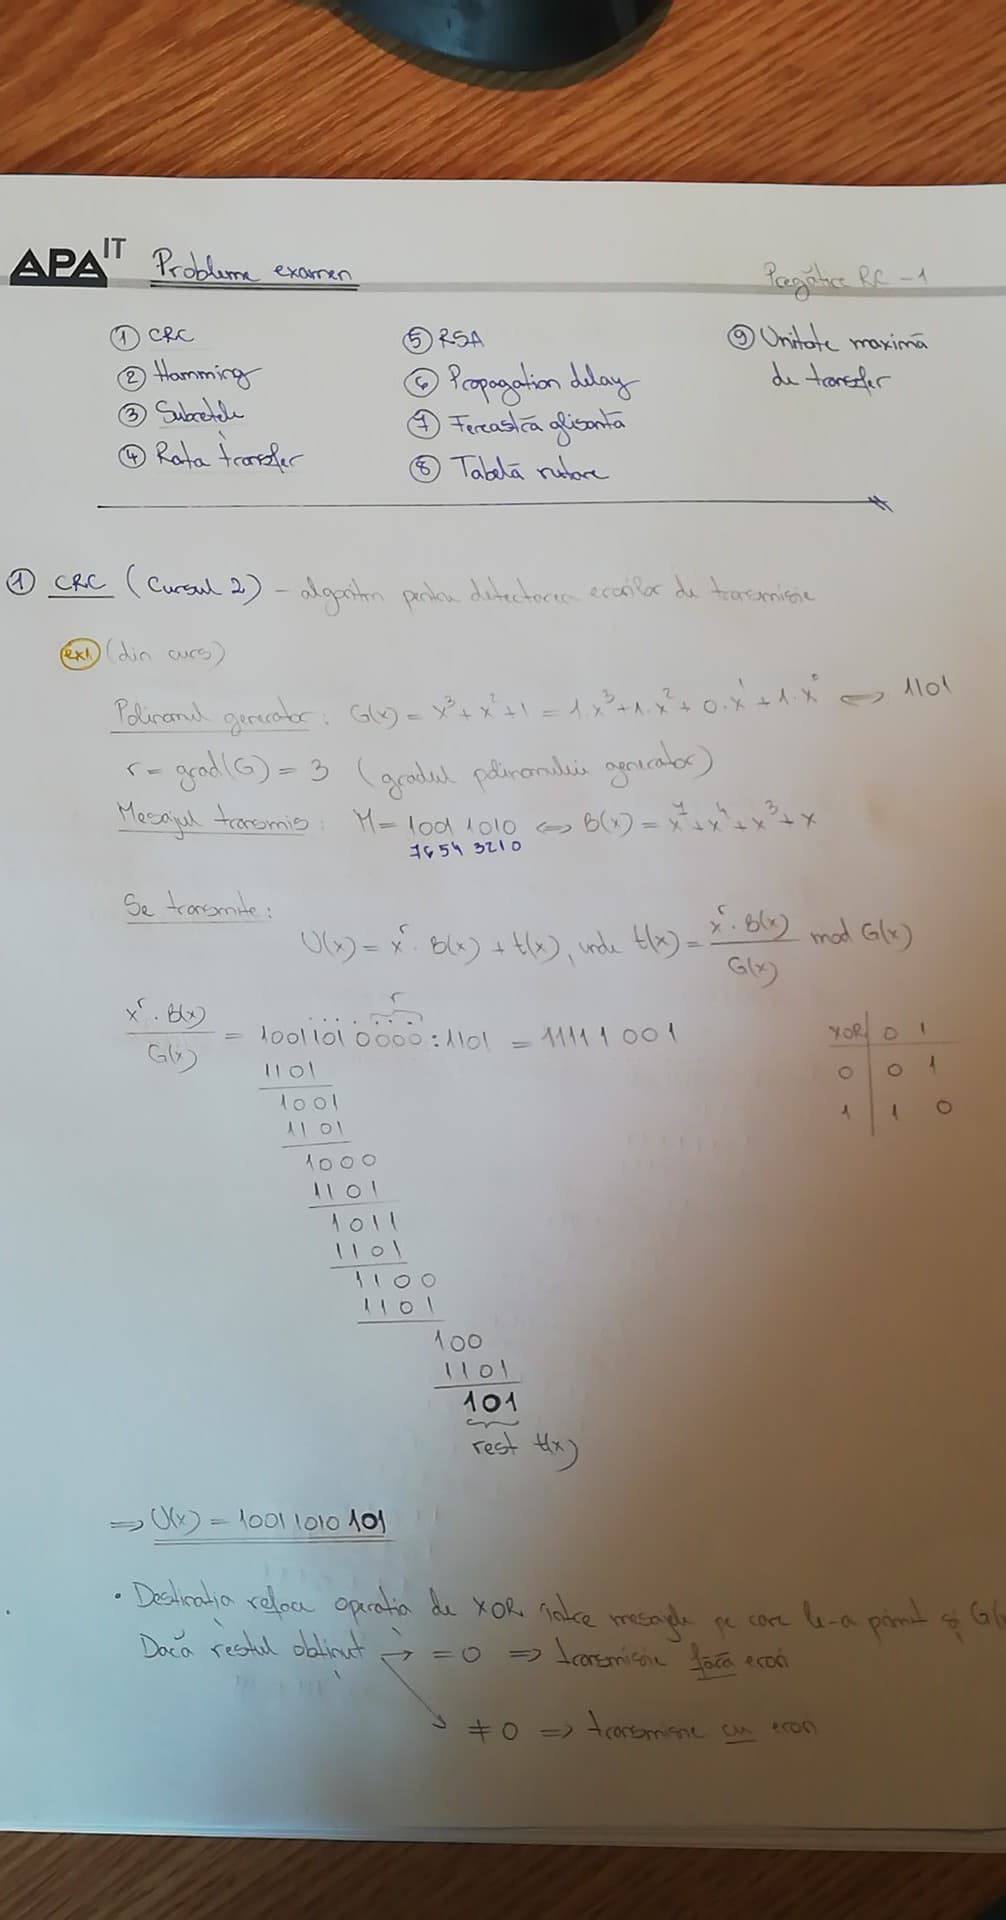 APA IT Probleme examen
Pregătire RC - 1
① CRC
② Hamming
③ Subrețele
④ Rata transfer
⑤ RSA
⑥ Propagation delay
⑦ Fereastră glisantă
⑧ Tabelă rutare
⑨ Unitate maximă
de transfer
① CRC (Cursul 2) - algoritm pentru detectarea erorilor de transmisie
ex1 (din curs)
Polinomul generator: G(x) = x³ + x² + 1 = 1·x³ + 1·x² + 0·x¹ + 1·x⁰ ⟺ 1101
r = grad(G) = 3 (gradul polinomului generator)
Mesajul transmis: M = 1001 1010 ⟺ B(x) = x⁷ + x⁴ + x³ + x
7654 3210
Se transmite:
U(x) = xʳ · B(x) + t(x), unde t(x) = xʳ · B(x) / G(x) mod G(x)
r
xʳ · B(x) / G(x) = 1001101 0000 : 1101 = 11111 001
1101
1001
1101
1000
1101
1011
1101
1100
1101
100
1101
101
rest t(x)
XOR 0 1
0 0 1
1 1 0
⟹ U(x) = 10011010 101
• Destinația reface operația de XOR între mesajele pe care le-a primit și G(
Dacă restul obținut → = 0 ⟹ transmisie fără erori
≠ 0 ⟹ transmisie cu erori